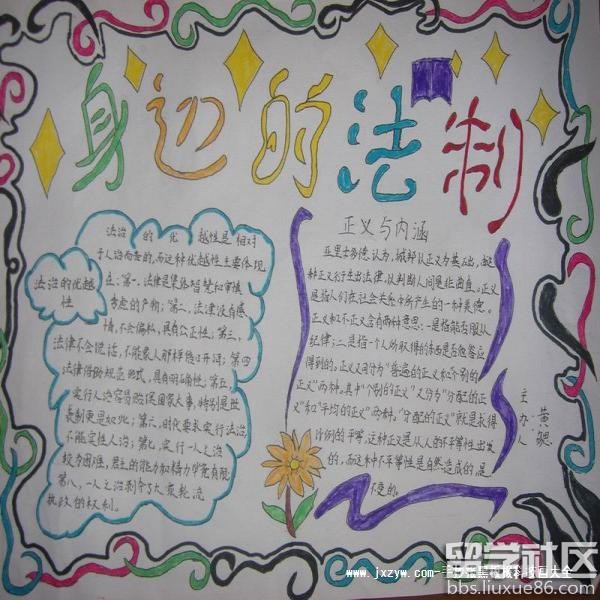 身边的法制
法治的优越性
法治的优越性是相对
于人治而言的,而这种优越性主要体现
在:第一,法律是集体智慧和审慎
考虑的产物;第二,法律没有感
情,不会偏私,具有公正性;第三,
法律不会说话,不能象人那样信口开河;第四
法律借助规范形式,具有明确性;第五,
实行人治容易贻误国家大事,特别是世
袭制更是如此;第六,时代要求实行法治,
不能实行人治;第七,实行一人之治
较为困难,君主的能力和精力毕竟有限
第八,一人之治剥夺了大家轮流
执政的权利。
正义与内涵
亚里士多德认为,城邦以正义为基础,由
种正义衍生出法律,以判断人间是非曲直。正义
是指人们在社会关系中所产生的一种美德。
正义和不正义含有两种意思:一是指能否服从
纪律;二是指一个人所取得的东西是否他客应
得到的。正义又可分为"普遍的正义和个别的
正义"两种,其中"个别的正义"又分为"分配的正
义"和"平均的正义"两种。"分配的正义"就是求得
比例的平等,这种正义是从人的不平等性出发
的,而这种不平等性是自然造成的,是
不变的。
主办人
黄
留学社区
bbs.liuxue86.com
www.jxzyw.com